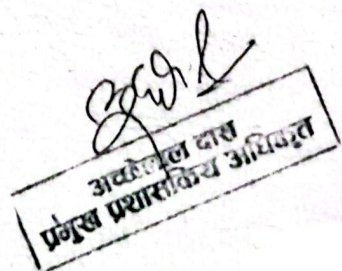 अच्छेलाल दास
प्रमुख प्रशासकिय अधिकृत